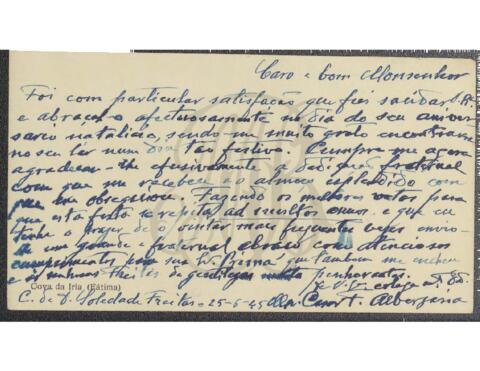 Caro e bom Monsenhor
Foi com particular satisfação que fui saudar V. R.
e abraçá-lo afectuosamente no dia do seu aniver
sario natalicio, sendo-me muito grato encontrar-me
no seu lar num dia tão festivo. Cumpre-me agora
agradecer-lhe efusivamente a fraternal
com que me recebeu e o almoço esplendido com
que me obsequiou. Fazendo os melhores votos para
que esta festa se repita ad multos annos e que eu
tenha o prazer de o visitar mais frequentes vezes envio-
lhe um grande e fraternal abraço com atenciosos
cumprimentos para sua que tambem me encheu
de gentilezas penhorantes.
Cova da Iria (Fátima)
De V. colega
C. de D. Soledade Freitas - 25-5-45 Albergaria